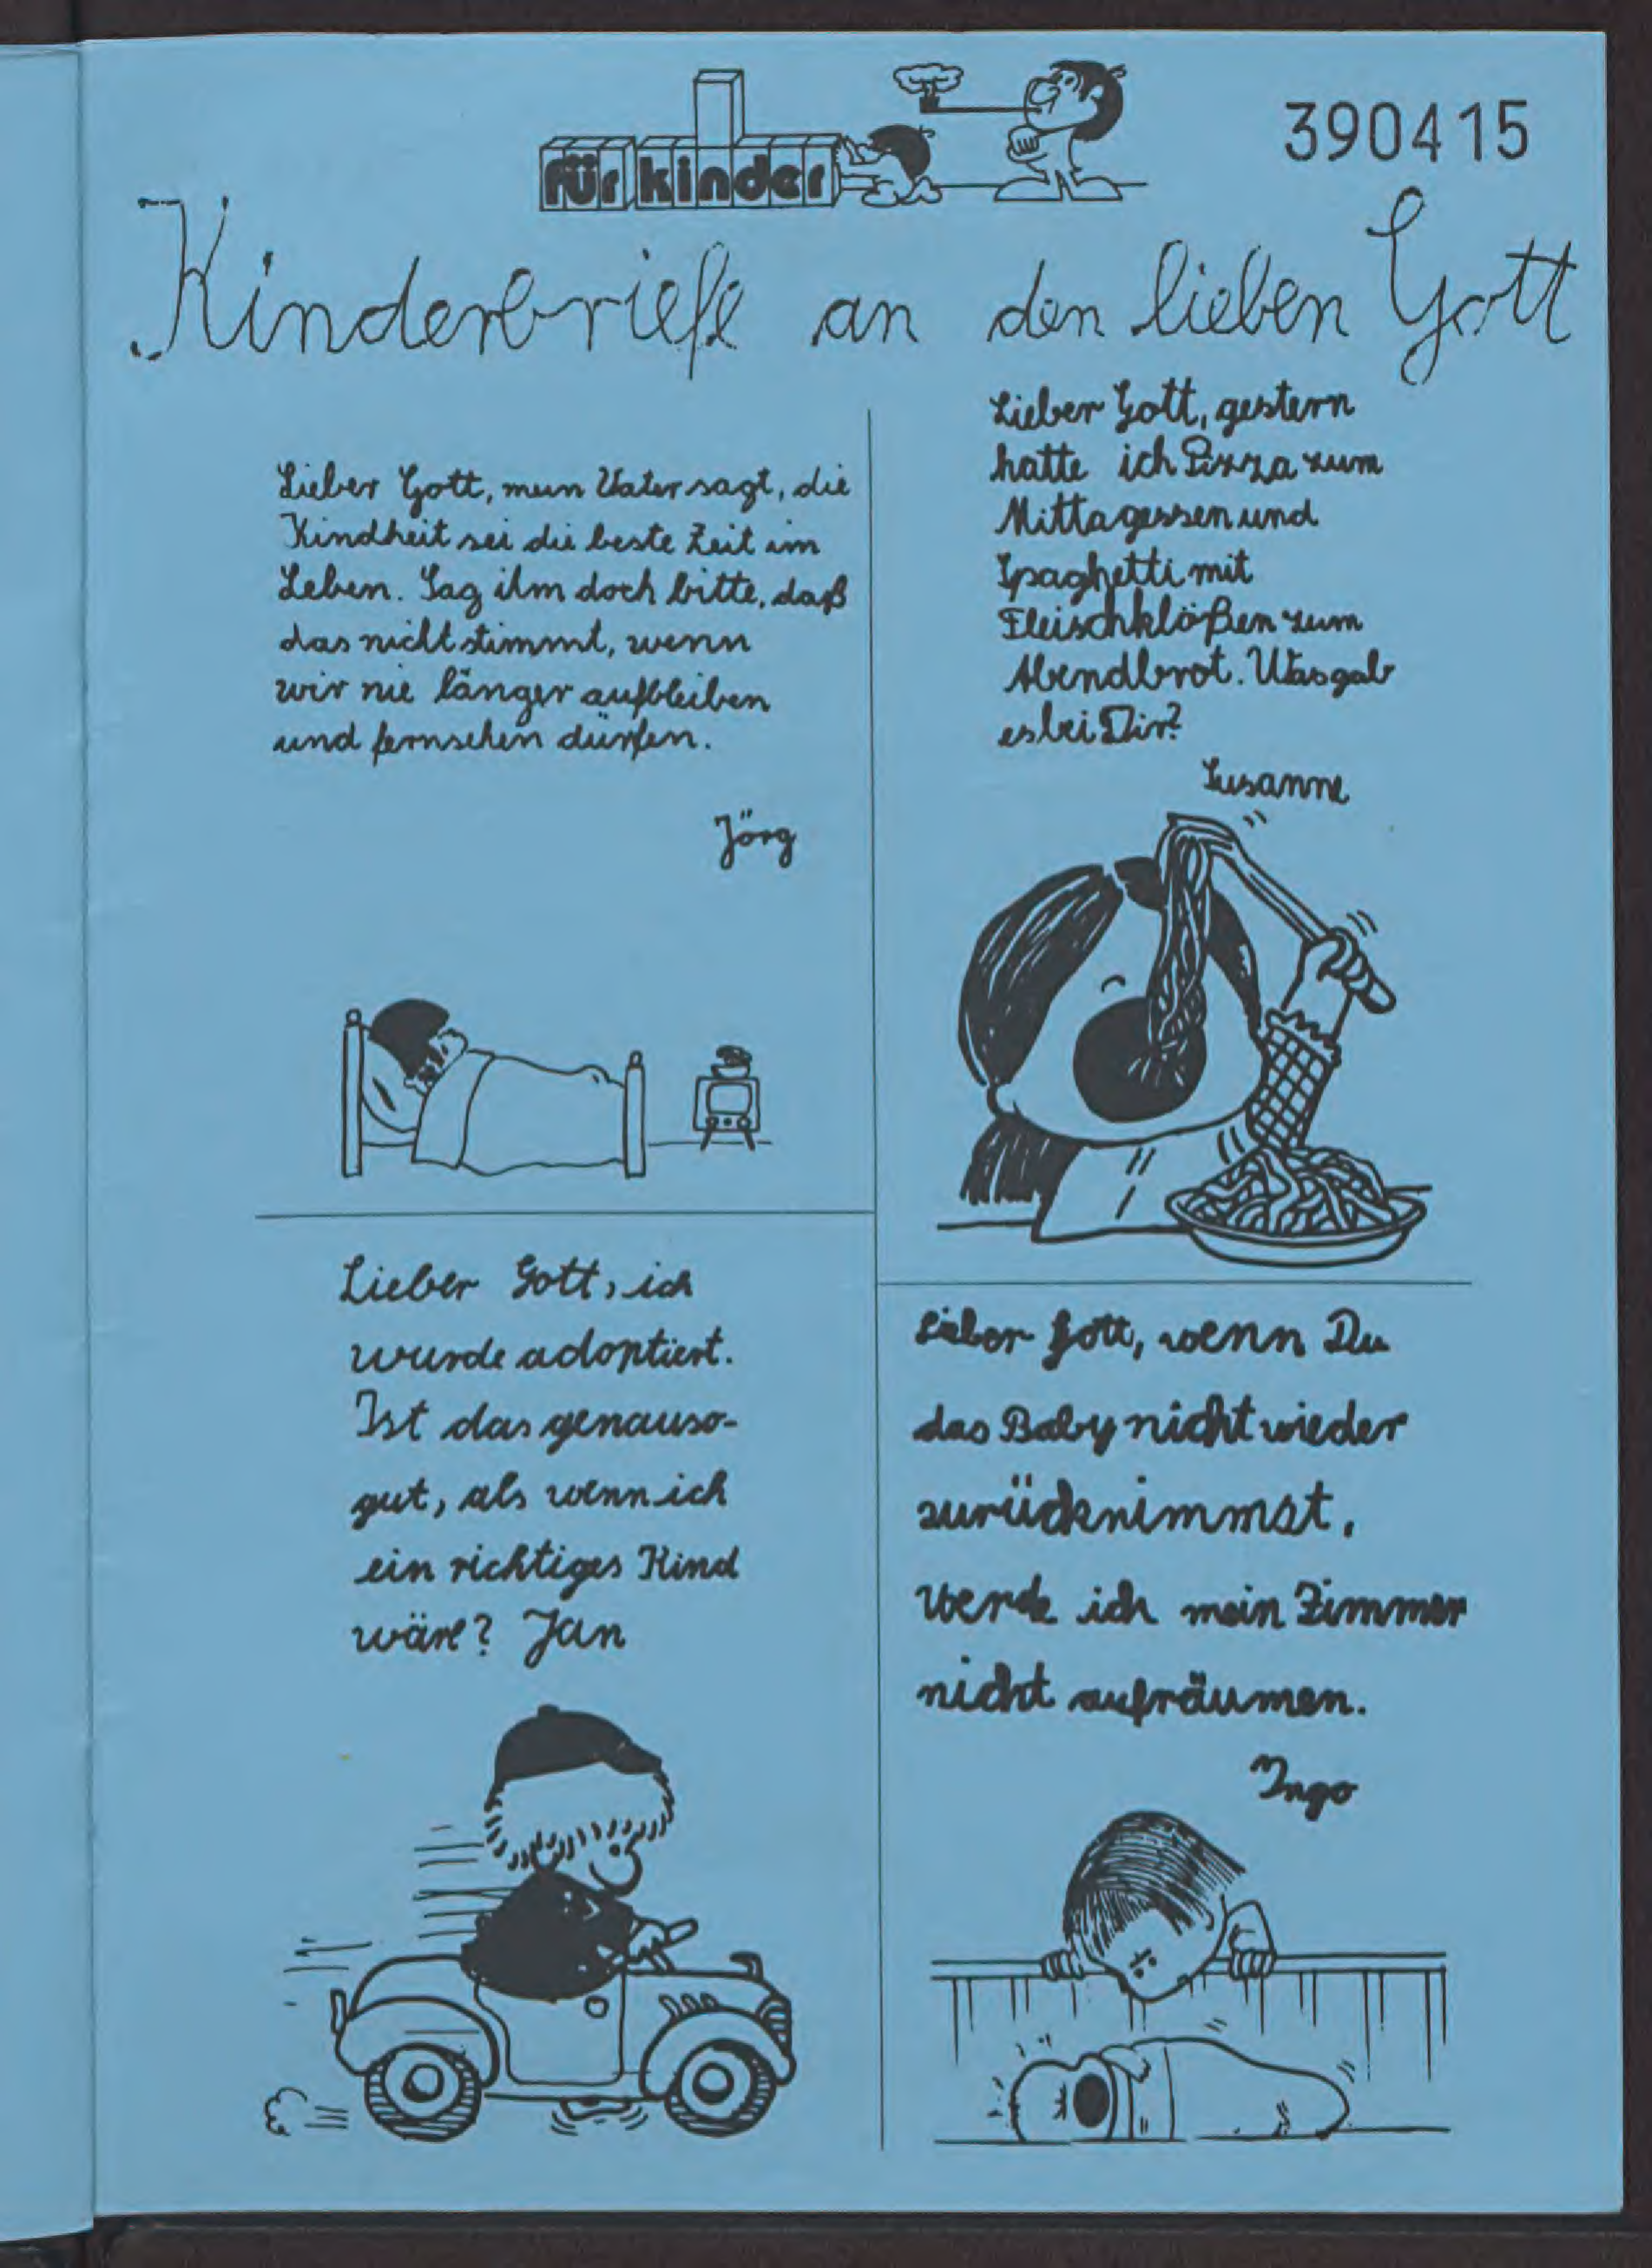 für kinder
390415
Kinderbriefe an den lieben Gott
Lieber Gott, mein Vater sagt, die
Kindheit sei die beste Zeit im
Leben. Sag ihm doch bitte, daß
das nicht stimmt, wenn
wir nie länger aufbleiben
und fernsehen dürfen.
Jörg
Lieber Gott, gestern
hatte ich Pizza zum
Mittagessen und
Spaghetti mit
Fleischklößen zum
Abendbrot. Was gab
es bei Dir?
Susanne
Lieber Gott, ich
wurde adoptiert.
Ist das genauso-
gut, als wenn ich
ein richtiges Kind
wäre? Jan
Lieber Gott, wenn Du
das Baby nicht wieder
zurücknimmst,
werde ich mein Zimmer
nicht aufräumen.
Ingo